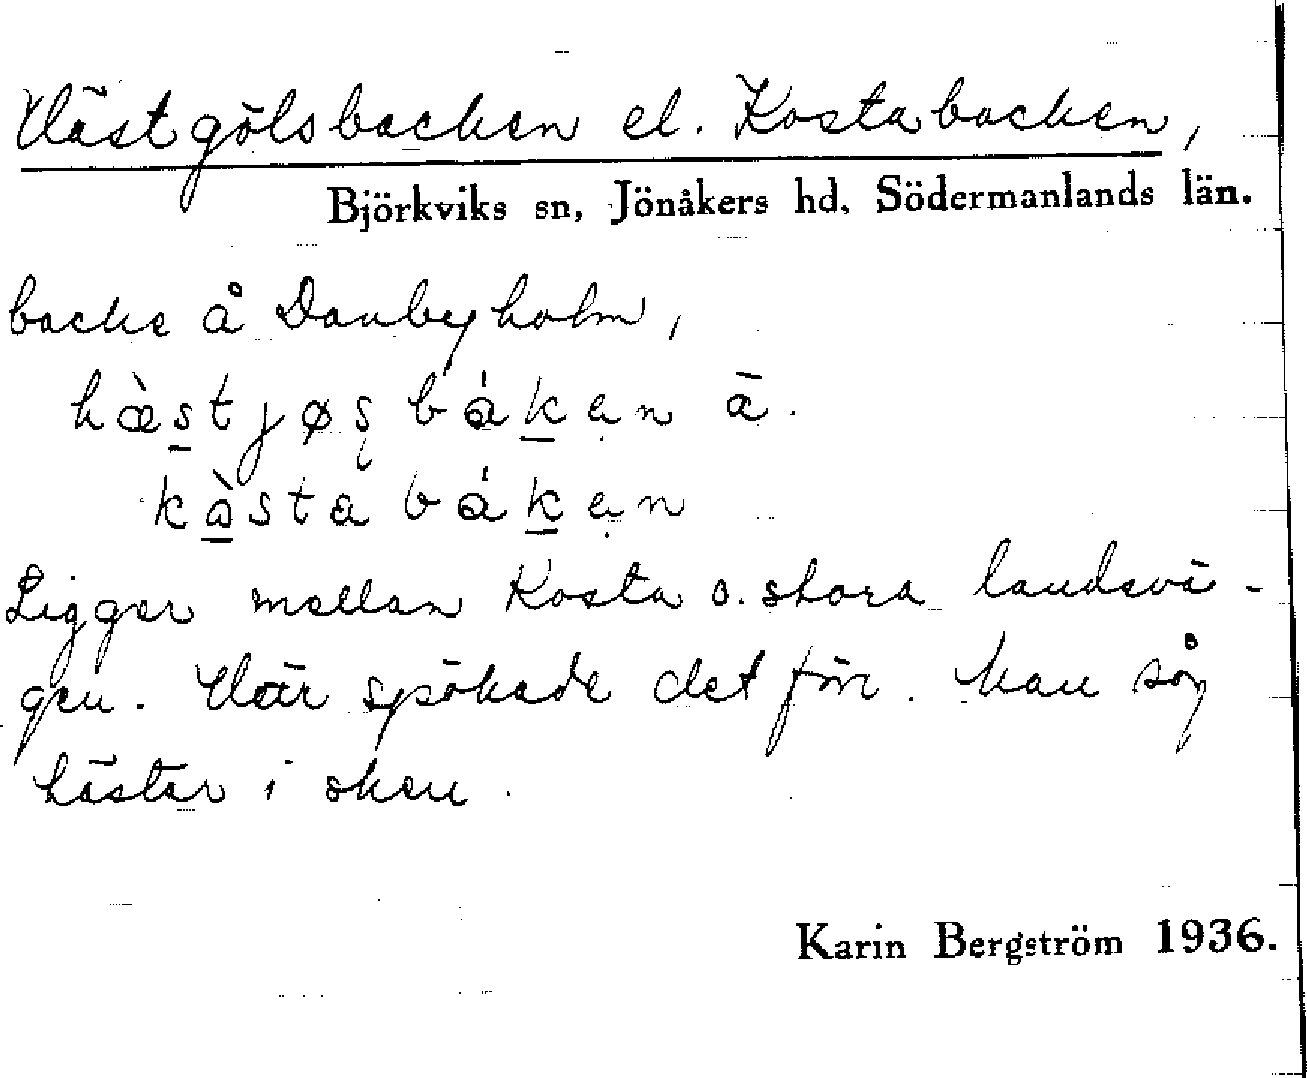 Hästgölsbacken el. Kostabacken,
Björkviks sn, Jönåkers hd, Södermanlands län.
backe å Danbyholm,
hæ̀s̲tjøʂbák̲ạn ā.
kà̲stabák̲ạn
Ligger mellan Kosta o. stora landsvä-
gen. Här spökade det förr. Man såg
hästar i sken.
Karin Bergström 1936.